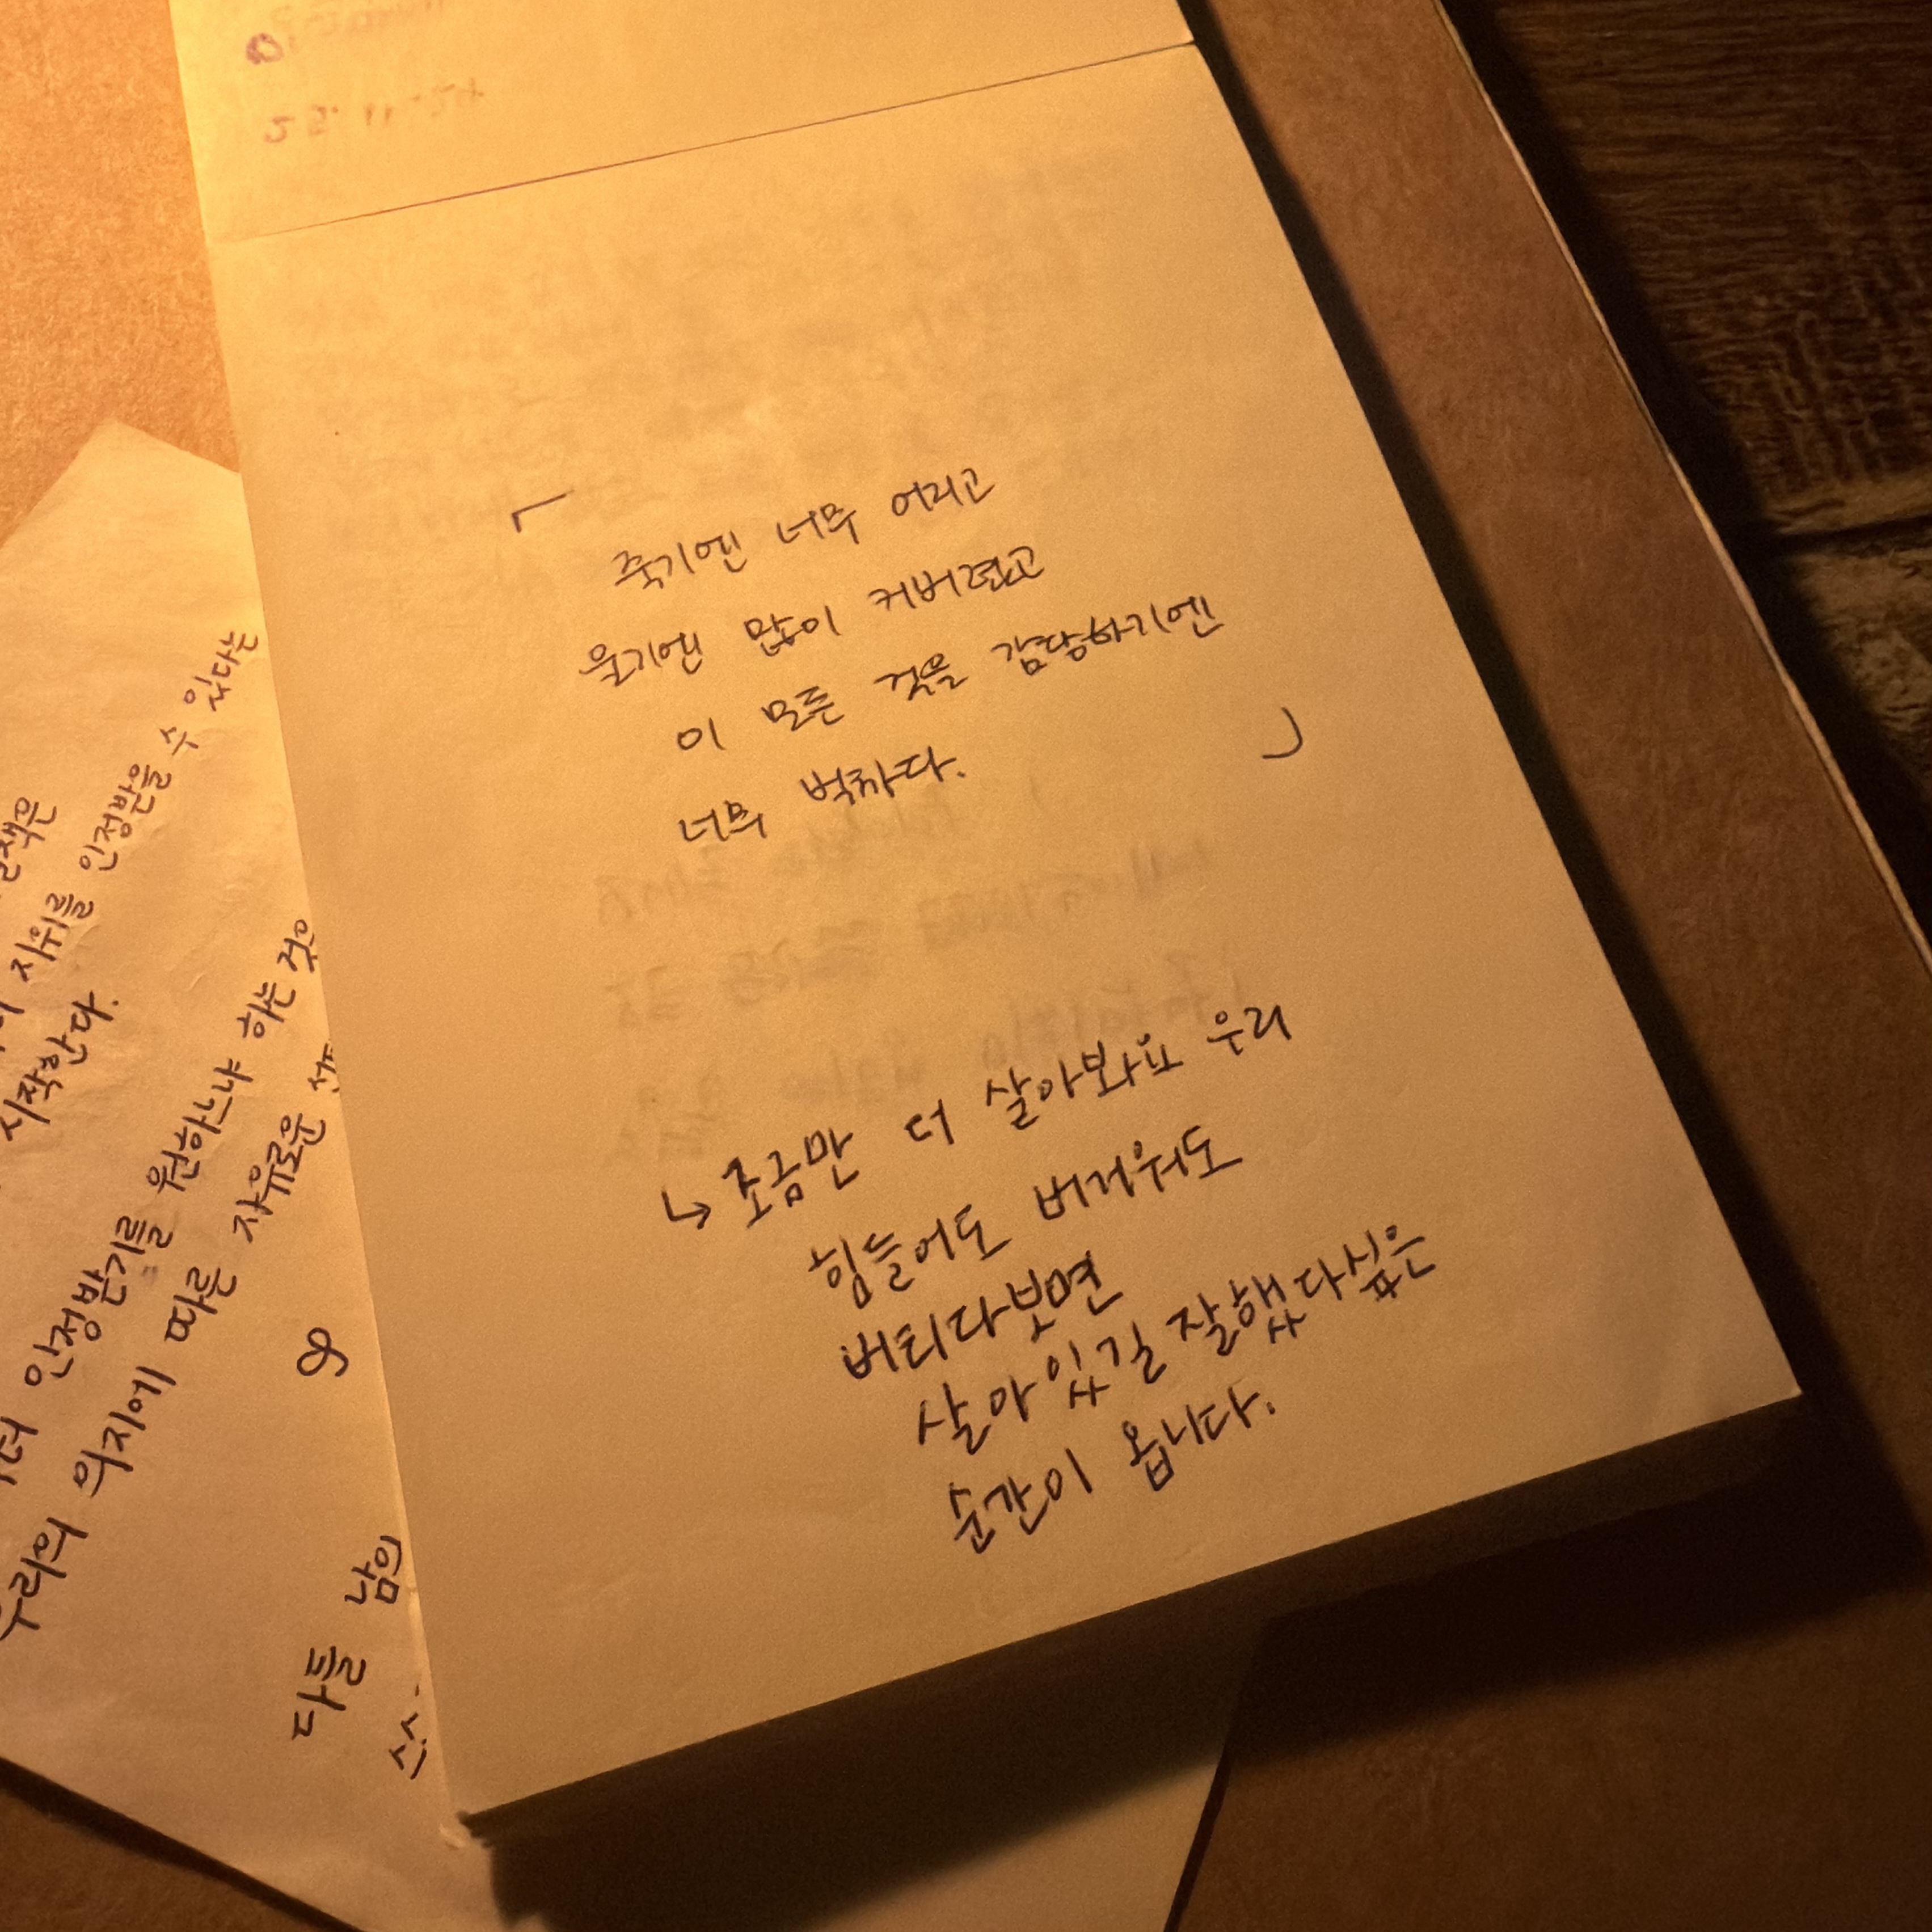 「 죽기엔 너무 어리고
울기엔 많이 커버렸고
이 모든 것을 감당하기엔
너무 벅차다. 」
↳ 조금만 더 살아봐요 우리
힘들어도 버거워도
버티다보면
살아있길 잘했다싶은
순간이 옵니다.
지위를 인정받을 수 있다는
시작한다.
인정받기를 원하느냐 하는 것은
우리의 의지에 따른 자유로운
다들 남의